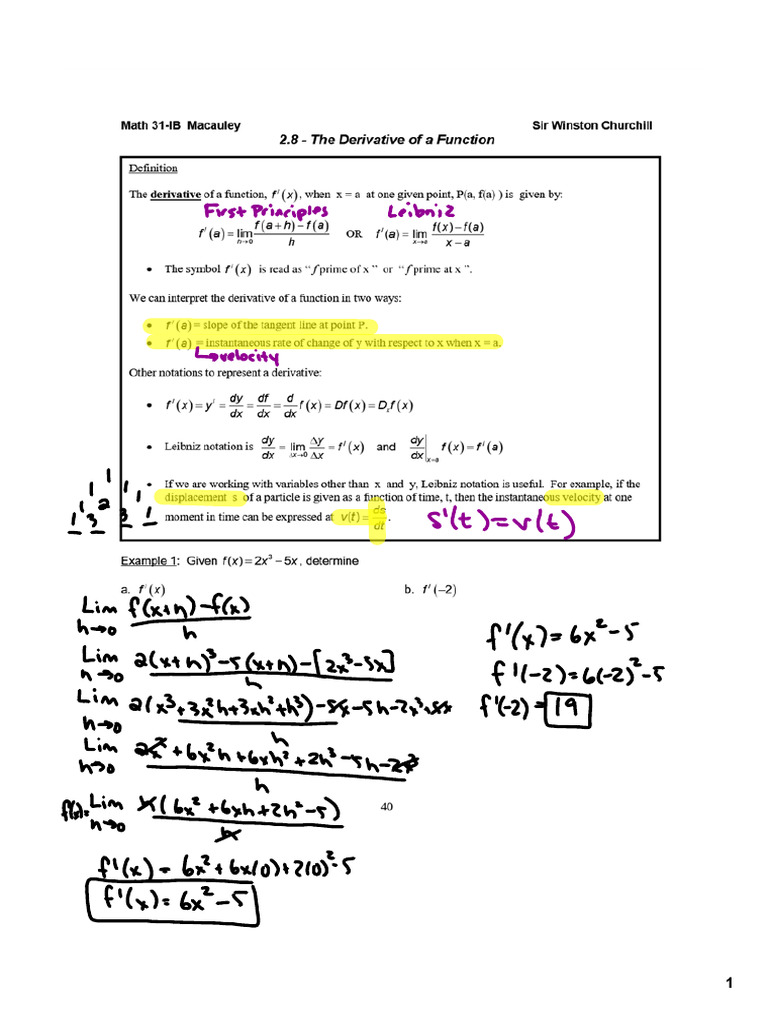 Math 31-IB Macauley Sir Winston Churchill
2.8 - The Derivative of a Function
Definition
The derivative of a function, f′(x), when x = a at one given point, P(a, f(a) ) is given by:
First Principles Leibniz
f′(a) = lim h→0 (f(a+h)−f(a))/h OR f′(a) = lim x→a (f(x)−f(a))/(x−a)
• The symbol f′(x) is read as “ f prime of x ” or “ f prime at x ”.
We can interpret the derivative of a function in two ways:
• f′(a) = slope of the tangent line at point P.
• f′(a) = instantaneous rate of change of y with respect to x when x = a.
↳velocity
Other notations to represent a derivative:
• f′(x) = y′ = dy/dx = df/dx = d/dx f(x) = Df(x) = Dₓf(x)
• Leibniz notation is dy/dx = lim Δx→0 Δy/Δx = f′(x) and dy/dx|x=a f(x) = f′(a)
• If we are working with variables other than x and y, Leibniz notation is useful. For example, if the
displacement s of a particle is given as a function of time, t, then the instantaneous velocity at one
moment in time can be expressed at v(t) = ds/dt.
s'(t) = v(t)
1
1 1
1 2 1
1 3 3 1
Example 1: Given f(x) = 2x³ − 5x, determine
a. f′(x) b. f′(−2)
Lim h→0 (f(x+h)−f(x))/h
Lim h→0 (2(x+h)³−5(x+h)−[2x³−5x])/h
Lim h→0 (2(x³+3x²h+3xh²+h³)−5x−5h−2x³+5x)/h
Lim h→0 (2x³+6x²h+6xh²+2h³−5h−2x³)/h
f'(x)= Lim h→0 h(6x²+6xh+2h²−5)/h
f'(x) = 6x²+6x(0)+2(0)²−5
f'(x) = 6x²−5
f'(x) = 6x²−5
f'(−2) = 6(−2)²−5
f'(−2) = 19
40
1